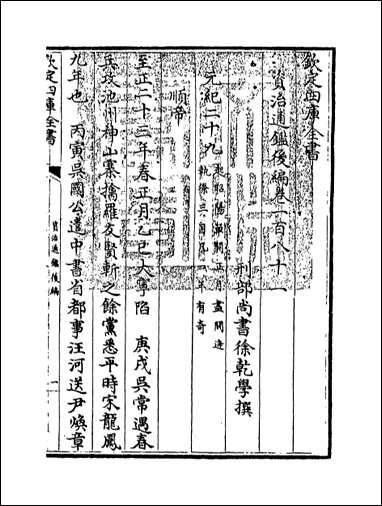 欽定四庫全書
資治通鑑後編卷一百八十一
刑部尚書徐乾學撰
元紀二十九
起昭陽單閼正月盡閼逢
執徐三月凡一年有奇
順帝
至正二十三年春正月乙巳大寧陷 庚戌吳常遇春
兵攻池州神山寨擒羅友賢斬之餘黨悉平時宋龍鳳
九年也 丙寅吳國公遣中書省都事汪河送尹煥章
欽定四庫全書
資治通鑑後編
一